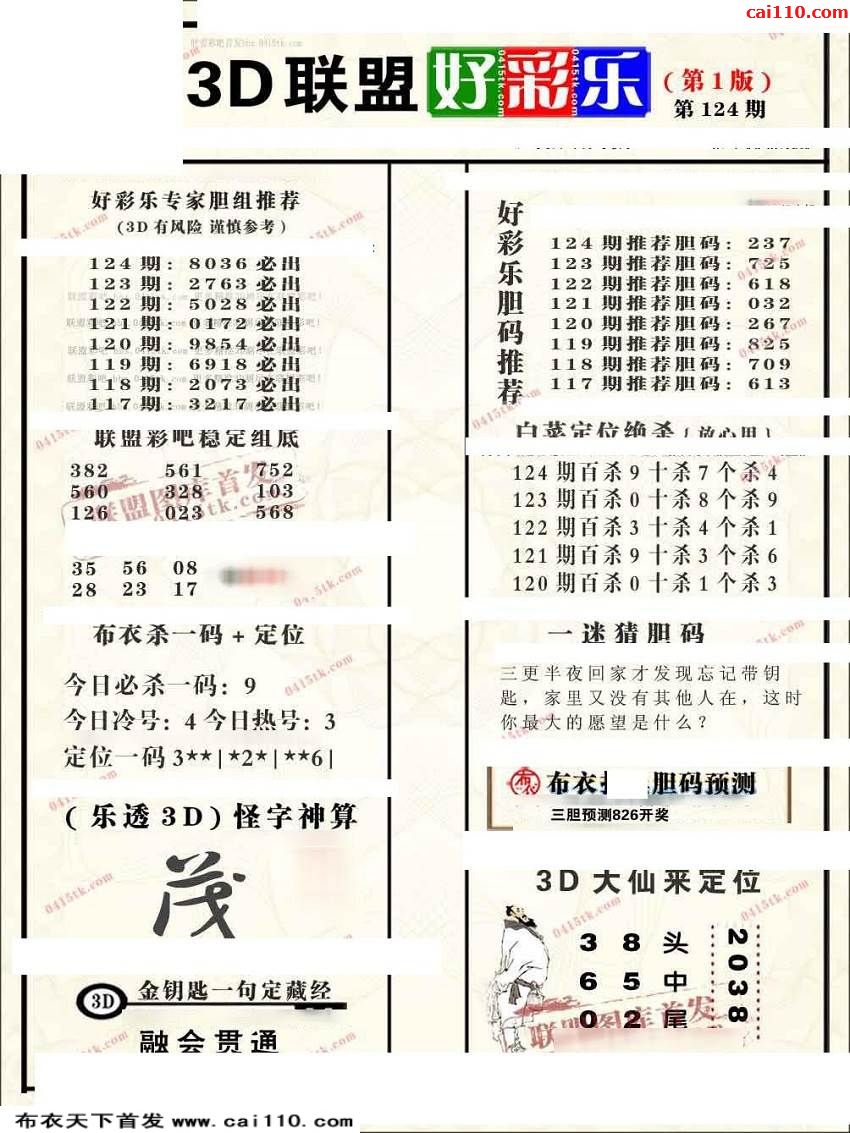 cai110.com
3D联盟好彩乐
(第1版)
第124期
好彩乐专家胆组推荐
(3D有风险 谨慎参考)
124期: 8036必出
123期: 2763必出
122期: 5028必出
121期: 0172必出
120期: 9854必出
119期: 6918必出
118期: 2073必出
117期: 3217必出
联盟彩吧稳定组底
382 561 752
560 328 103
126 023 568
35 56 08
28 23 17
布衣杀一码+定位
今日必杀一码: 9
今日冷号: 4 今日热号: 3
定位一码 3**|*2*|**6|
(乐透3D)怪字神算
茂
3D 金钥匙一句定藏经
融会贯通
好彩乐胆码推荐
124期推荐胆码: 237
123期推荐胆码: 725
122期推荐胆码: 618
121期推荐胆码: 032
120期推荐胆码: 267
119期推荐胆码: 825
118期推荐胆码: 709
117期推荐胆码: 613
白菜定位绝杀(放心用)
124期百杀9十杀7个杀4
123期百杀0十杀8个杀9
122期百杀3十杀4个杀1
121期百杀9十杀3个杀6
120期百杀0十杀1个杀3
一迷猜胆码
三更半夜回家才发现忘记带钥
匙，家里又没有其他人在，这时
你最大的愿望是什么？
布衣 胆码预测
三胆预测826开奖
3D大仙来定位
3 8 头
6 5 中
0 2 尾
2038
联盟图库首发
布衣天下首发 www.cai110.com